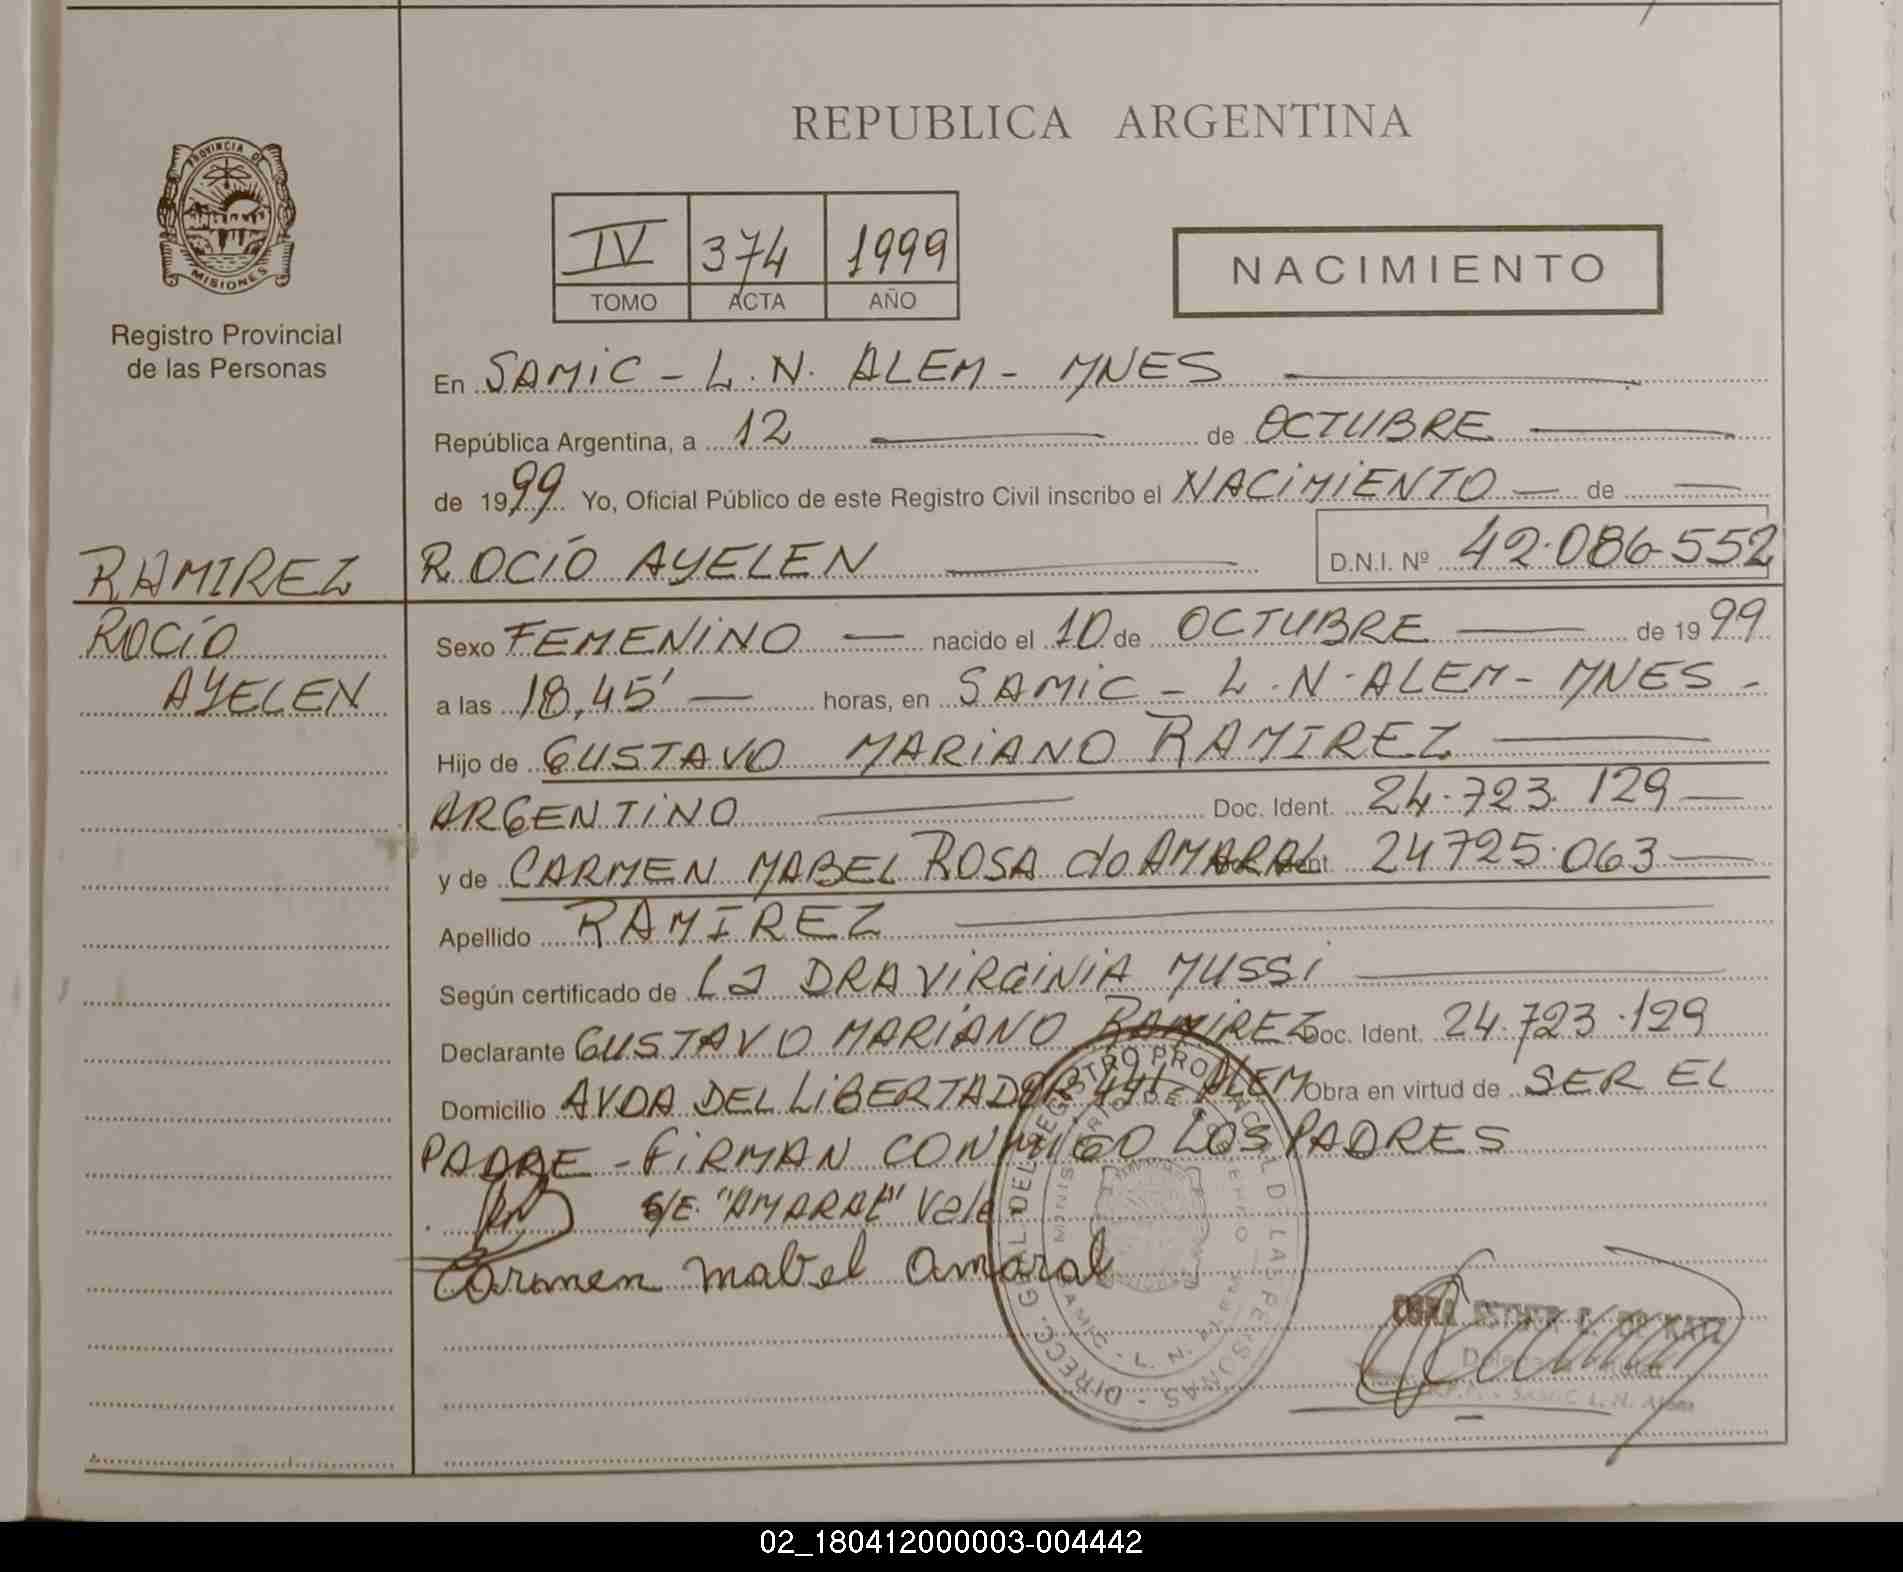 REPUBLICA ARGENTINA
PROVINCIA DE
MISIONES
Registro Provincial
de las Personas
IV 374 1999
TOMO ACTA AÑO
NACIMIENTO
En SAMIC - L. N. ALEM - MNES
República Argentina, a 12 de OCTUBRE
de 1999 Yo, Oficial Público de este Registro Civil inscribo el NACIMIENTO de
RAMIREZ
ROCÍO
AYELEN
ROCÍO AYELEN D.N.I. Nº 42.086.552
Sexo FEMENINO nacido el 10 de OCTUBRE de 1999
a las 18,45' horas, en SAMIC - L. N. ALEM - MNES -
Hijo de GUSTAVO MARIANO RAMIREZ
ARGENTINO Doc. Ident. 24.723.129
y de CARMEN MABEL ROSA do AMARAL 24725.063
Apellido RAMIREZ
Según certificado de La DRA VIRGINIA MUSSI
Declarante GUSTAVO MARIANO RAMIREZ Doc. Ident. 24.723.129
Domicilio AVDA DEL LIBERTADOR 441 ALEM Obra en virtud de SER EL
PADRE - FIRMAN CONMIGO LOS PADRES
S/E. "AMARAL" Vale
Carmen mabel amaral
DIRECC. GRAL. DEL REGISTRO PROVINCIAL DE LAS PERSONAS
ESTHER DE KATZ
SAMIC L. N. Alem
02_180412000003-004442